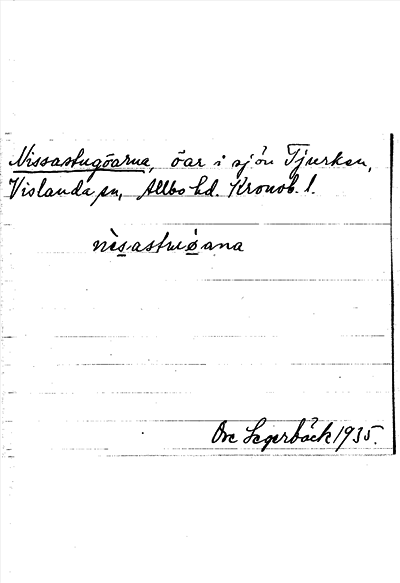 Nissastugöarna, öar i sjön Tjurken,
Vislanda sn, Allbo hd. Kronob. l.
nìsastuøana
Ove Segerbäck 1935.